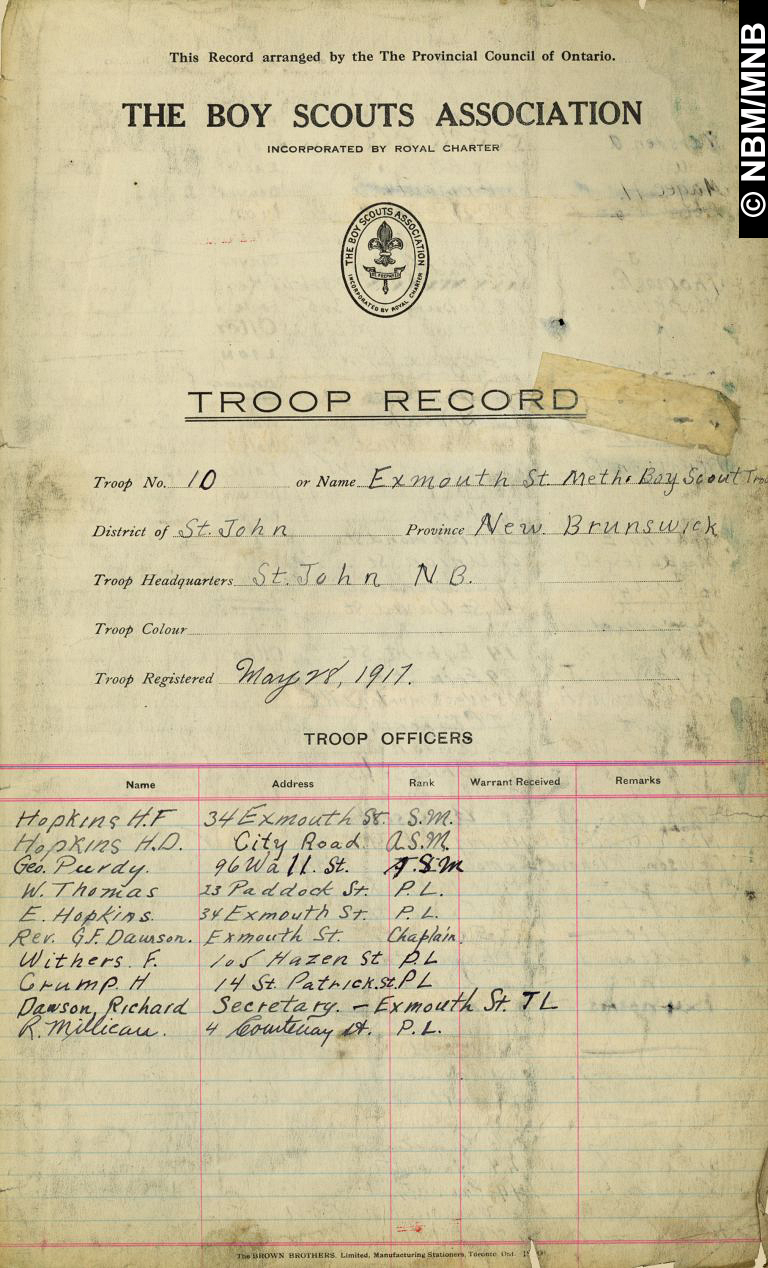 © NBM/MNB
This Record arranged by the The Provincial Council of Ontario.
THE BOY SCOUTS ASSOCIATION
INCORPORATED BY ROYAL CHARTER
THE BOY SCOUTS ASSOCIATION
BE PREPARED
INCORPORATED BY ROYAL CHARTER
TROOP RECORD
Troop No. 10 or Name Exmouth St. Meth. Boy Scout
District of St. John Province New Brunswick
Troop Headquarters St. John N B.
Troop Colour
Troop Registered May 28, 1917.
TROOP OFFICERS
Name Address Rank Warrant Received Remarks
Hopkins H.F 34 Exmouth St. S.M.
Hopkins H.D. City Road. A.S.M.
Geo. Purdy. 96 Wall. St. S.M
W. Thomas 23 Paddock St. P.L.
E. Hopkins. 34 Exmouth St. P.L.
Rev. G.F. Dawson. Exmouth St. Chaplain.
Withers. F. 105 Hazen St P.L
Crump. H 14 St. Patrick.St. P L
Dawson, Richard Secretary. - Exmouth St. T L
R. Millican. 4 Courtenay St. P.L.
The BROWN BROTHERS. Limited, Manufacturing Stationers, Toronto. Ont.